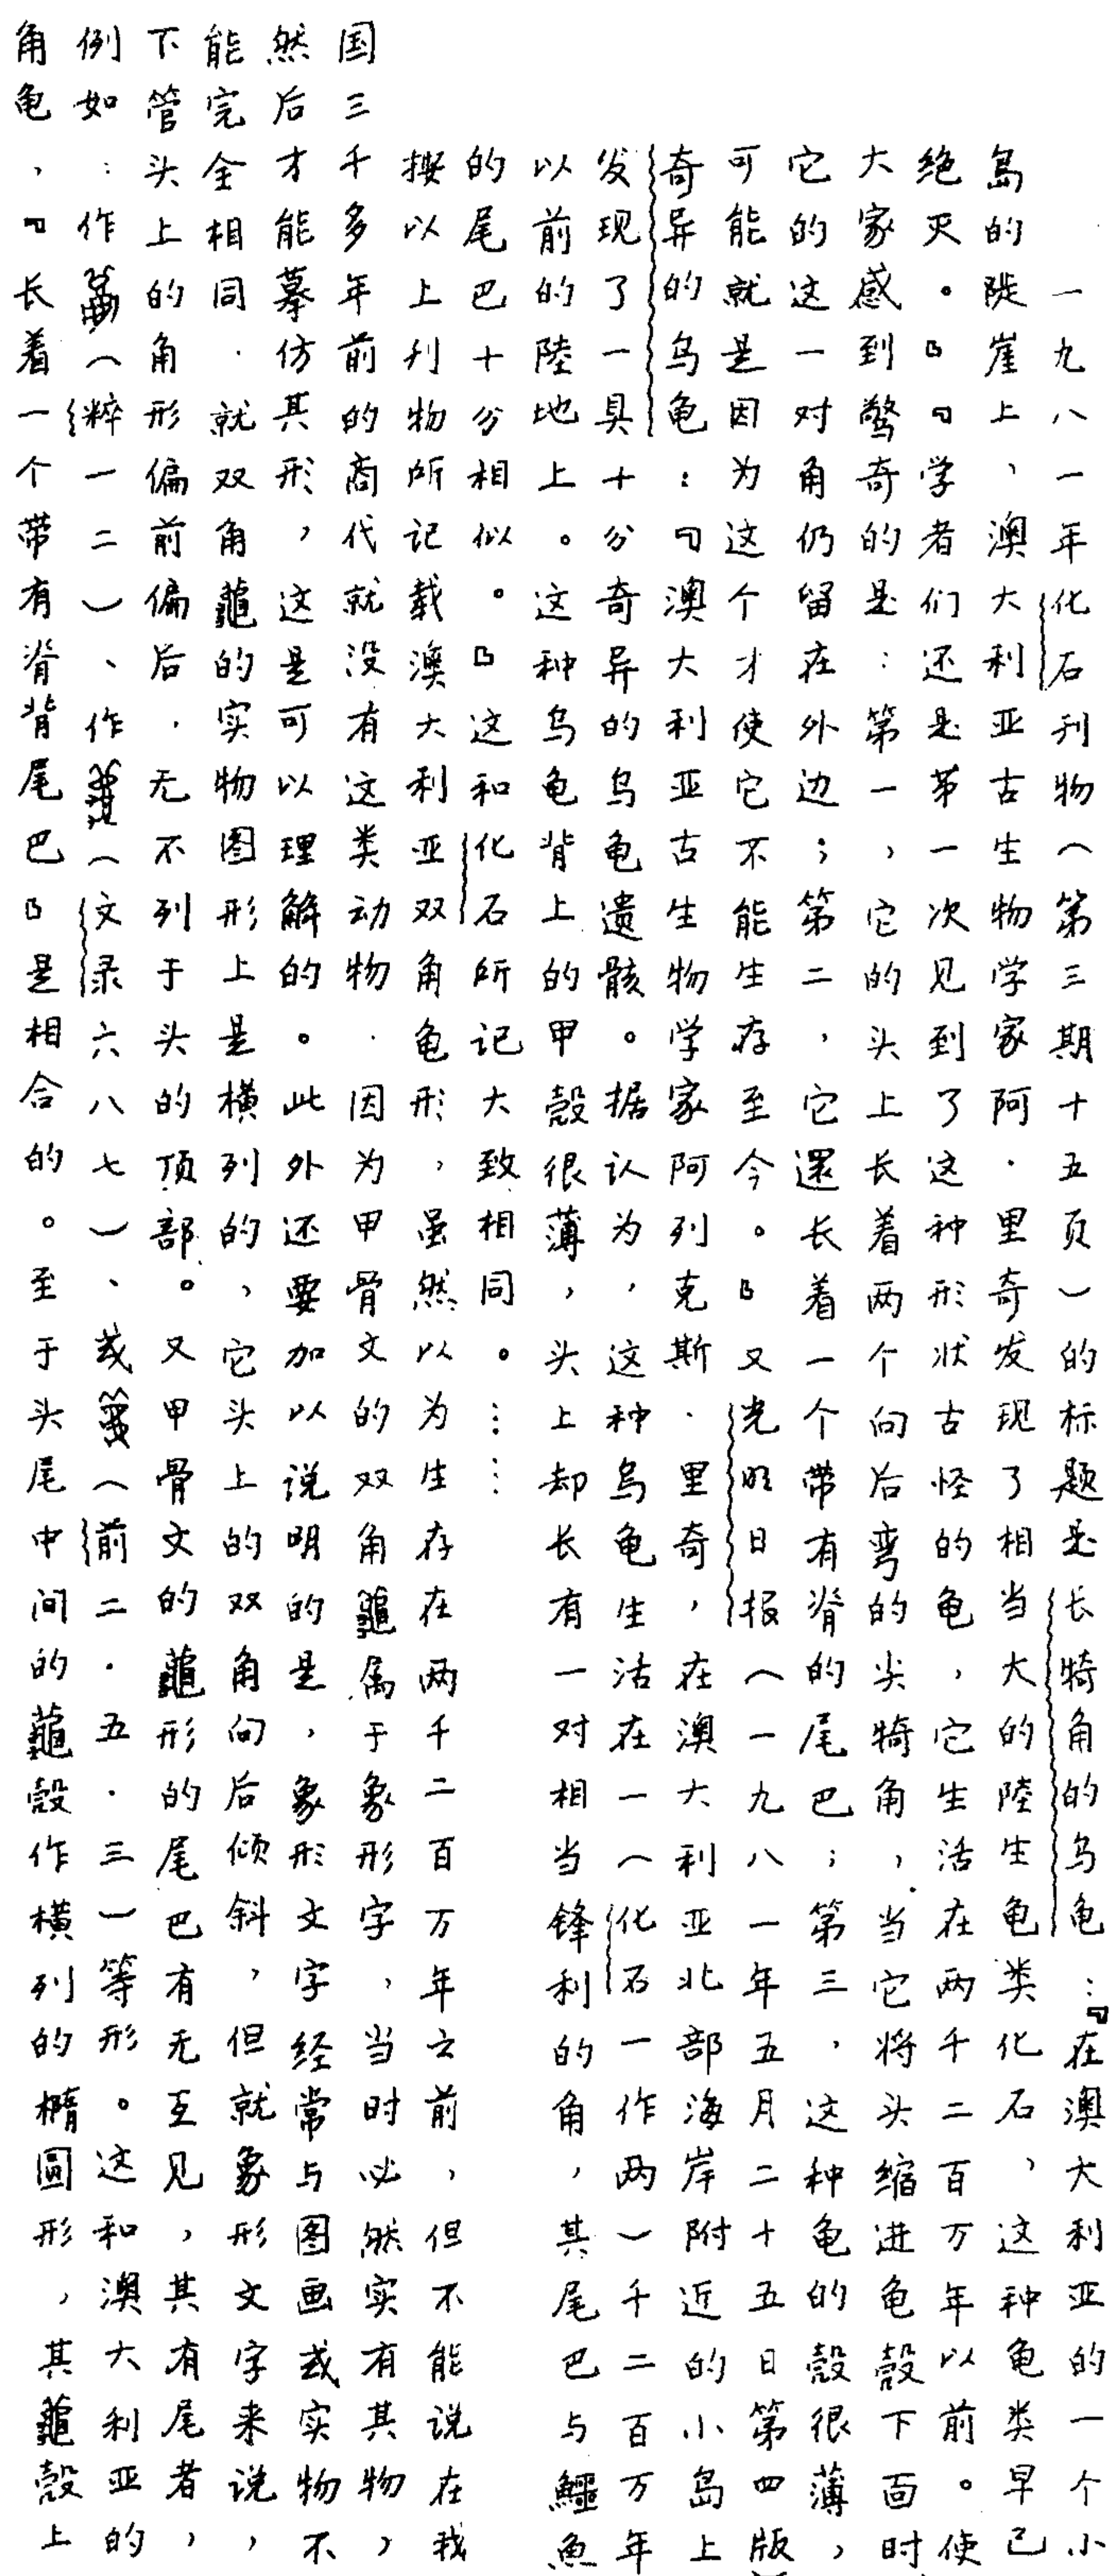 一九八一年化石刊物（第三期十五页）的标题是长犄角的乌龟：『在澳大利亚的一个小
岛的陡崖上，澳大利亚古生物学家阿·里奇发现了相当大的陸生龟类化石，这种龟类早已
绝灭。』『学者们还是第一次见到了这种形状古怪的龟，它生活在两千二百万年以前。使
大家感到驚奇的是：第一，它的头上长着两个向后弯的尖犄角，当它将头缩进龟殼下面时
它的这一对角仍留在外边；第二，它還长着一个带有脊的尾巴；第三，这种龟的殼很薄，
可能就是因为这个才使它不能生存至今。』又光明日报（一九八一年五月二十五日第四版
奇异的乌龟：『澳大利亚古生物学家阿列克斯·里奇，在澳大利亚北部海岸附近的小岛上
发现了一具十分奇异的乌龟遗骸。据认为，这种乌龟生活在一（化石一作两）千二百万年
以前的陸地上。这种乌龟背上的甲殼很薄，头上却长有一对相当锋利的角，其尾巴与鱷魚
的尾巴十分相似。』这和化石所记大致相同。……
按以上刊物所记载澳大利亚双角龟形，虽然以为生存在两千二百万年之前，但不能说在我
国三千多年前的商代就没有这类动物．因为甲骨文的双角龜属于象形字，当时必然实有其物，
然后才能摹仿其形，这是可以理解的。此外还要加以说明的是，象形文字经常与图画或实物不
能完全相同．就双角龜的实物图形上是横列的，它头上的双角向后倾斜，但就象形文字来说，
下管头上的角形偏前偏后，无不列于头的顶部。又甲骨文的龜形的尾巴有无互见，其有尾者，
例如：作（粹一二）、作（文录六八七）、或（前二·五·三一）等形。这和澳大利亚的
角龟，『长着一个带有脊背尾巴』是相合的。至于头尾中间的龜殼作横列的橢圓形，其龜殼上